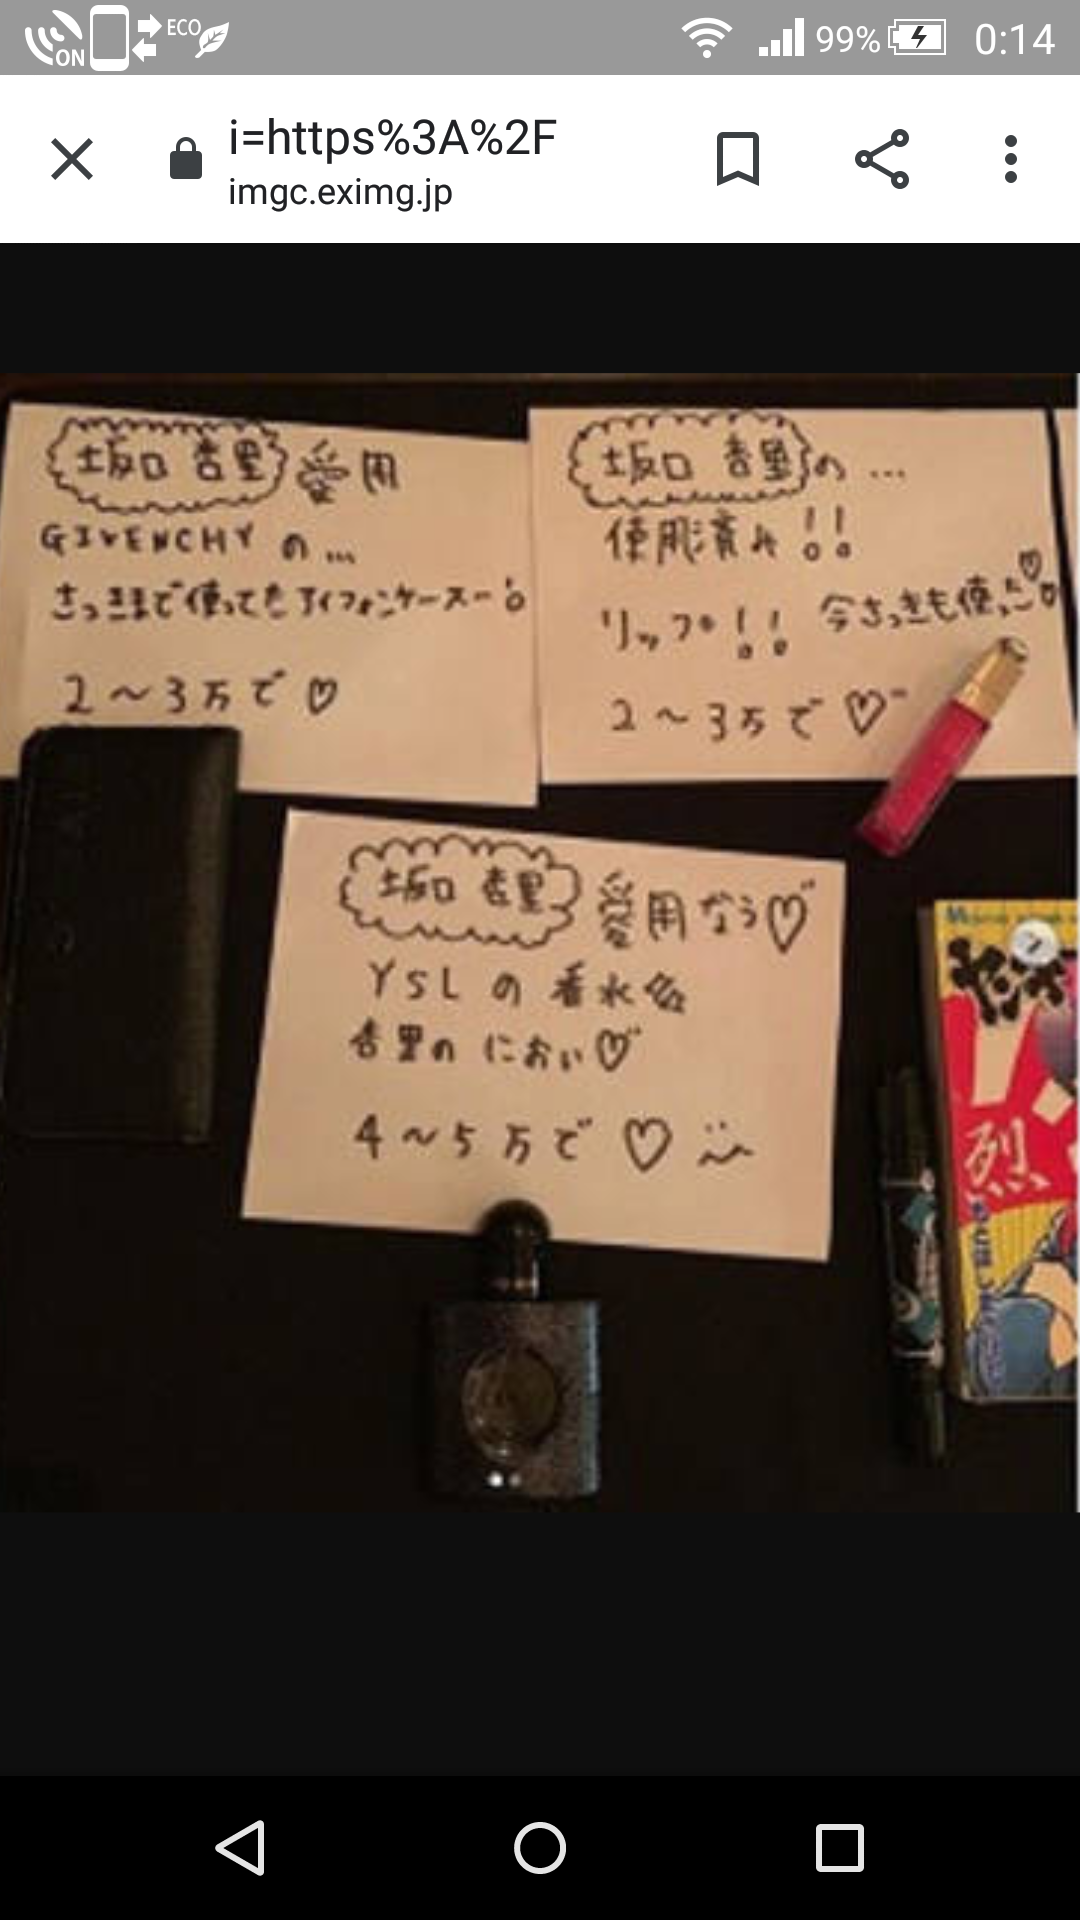 ON
ECO
99%
0:14
i=https%3A%2F
imgc.eximg.jp
坂口 杏里 愛用
GIVENCHY の...
さっきまで使ってたアイフォンケースー!
2〜3万で♡
坂口 杏里の...
使用済み!!
リップ!! 今さっきも使った♡
2〜3万で♡
坂口 杏里 愛用なう♡
YSLの香水
杏里の におい♡
4〜5万で♡
烈